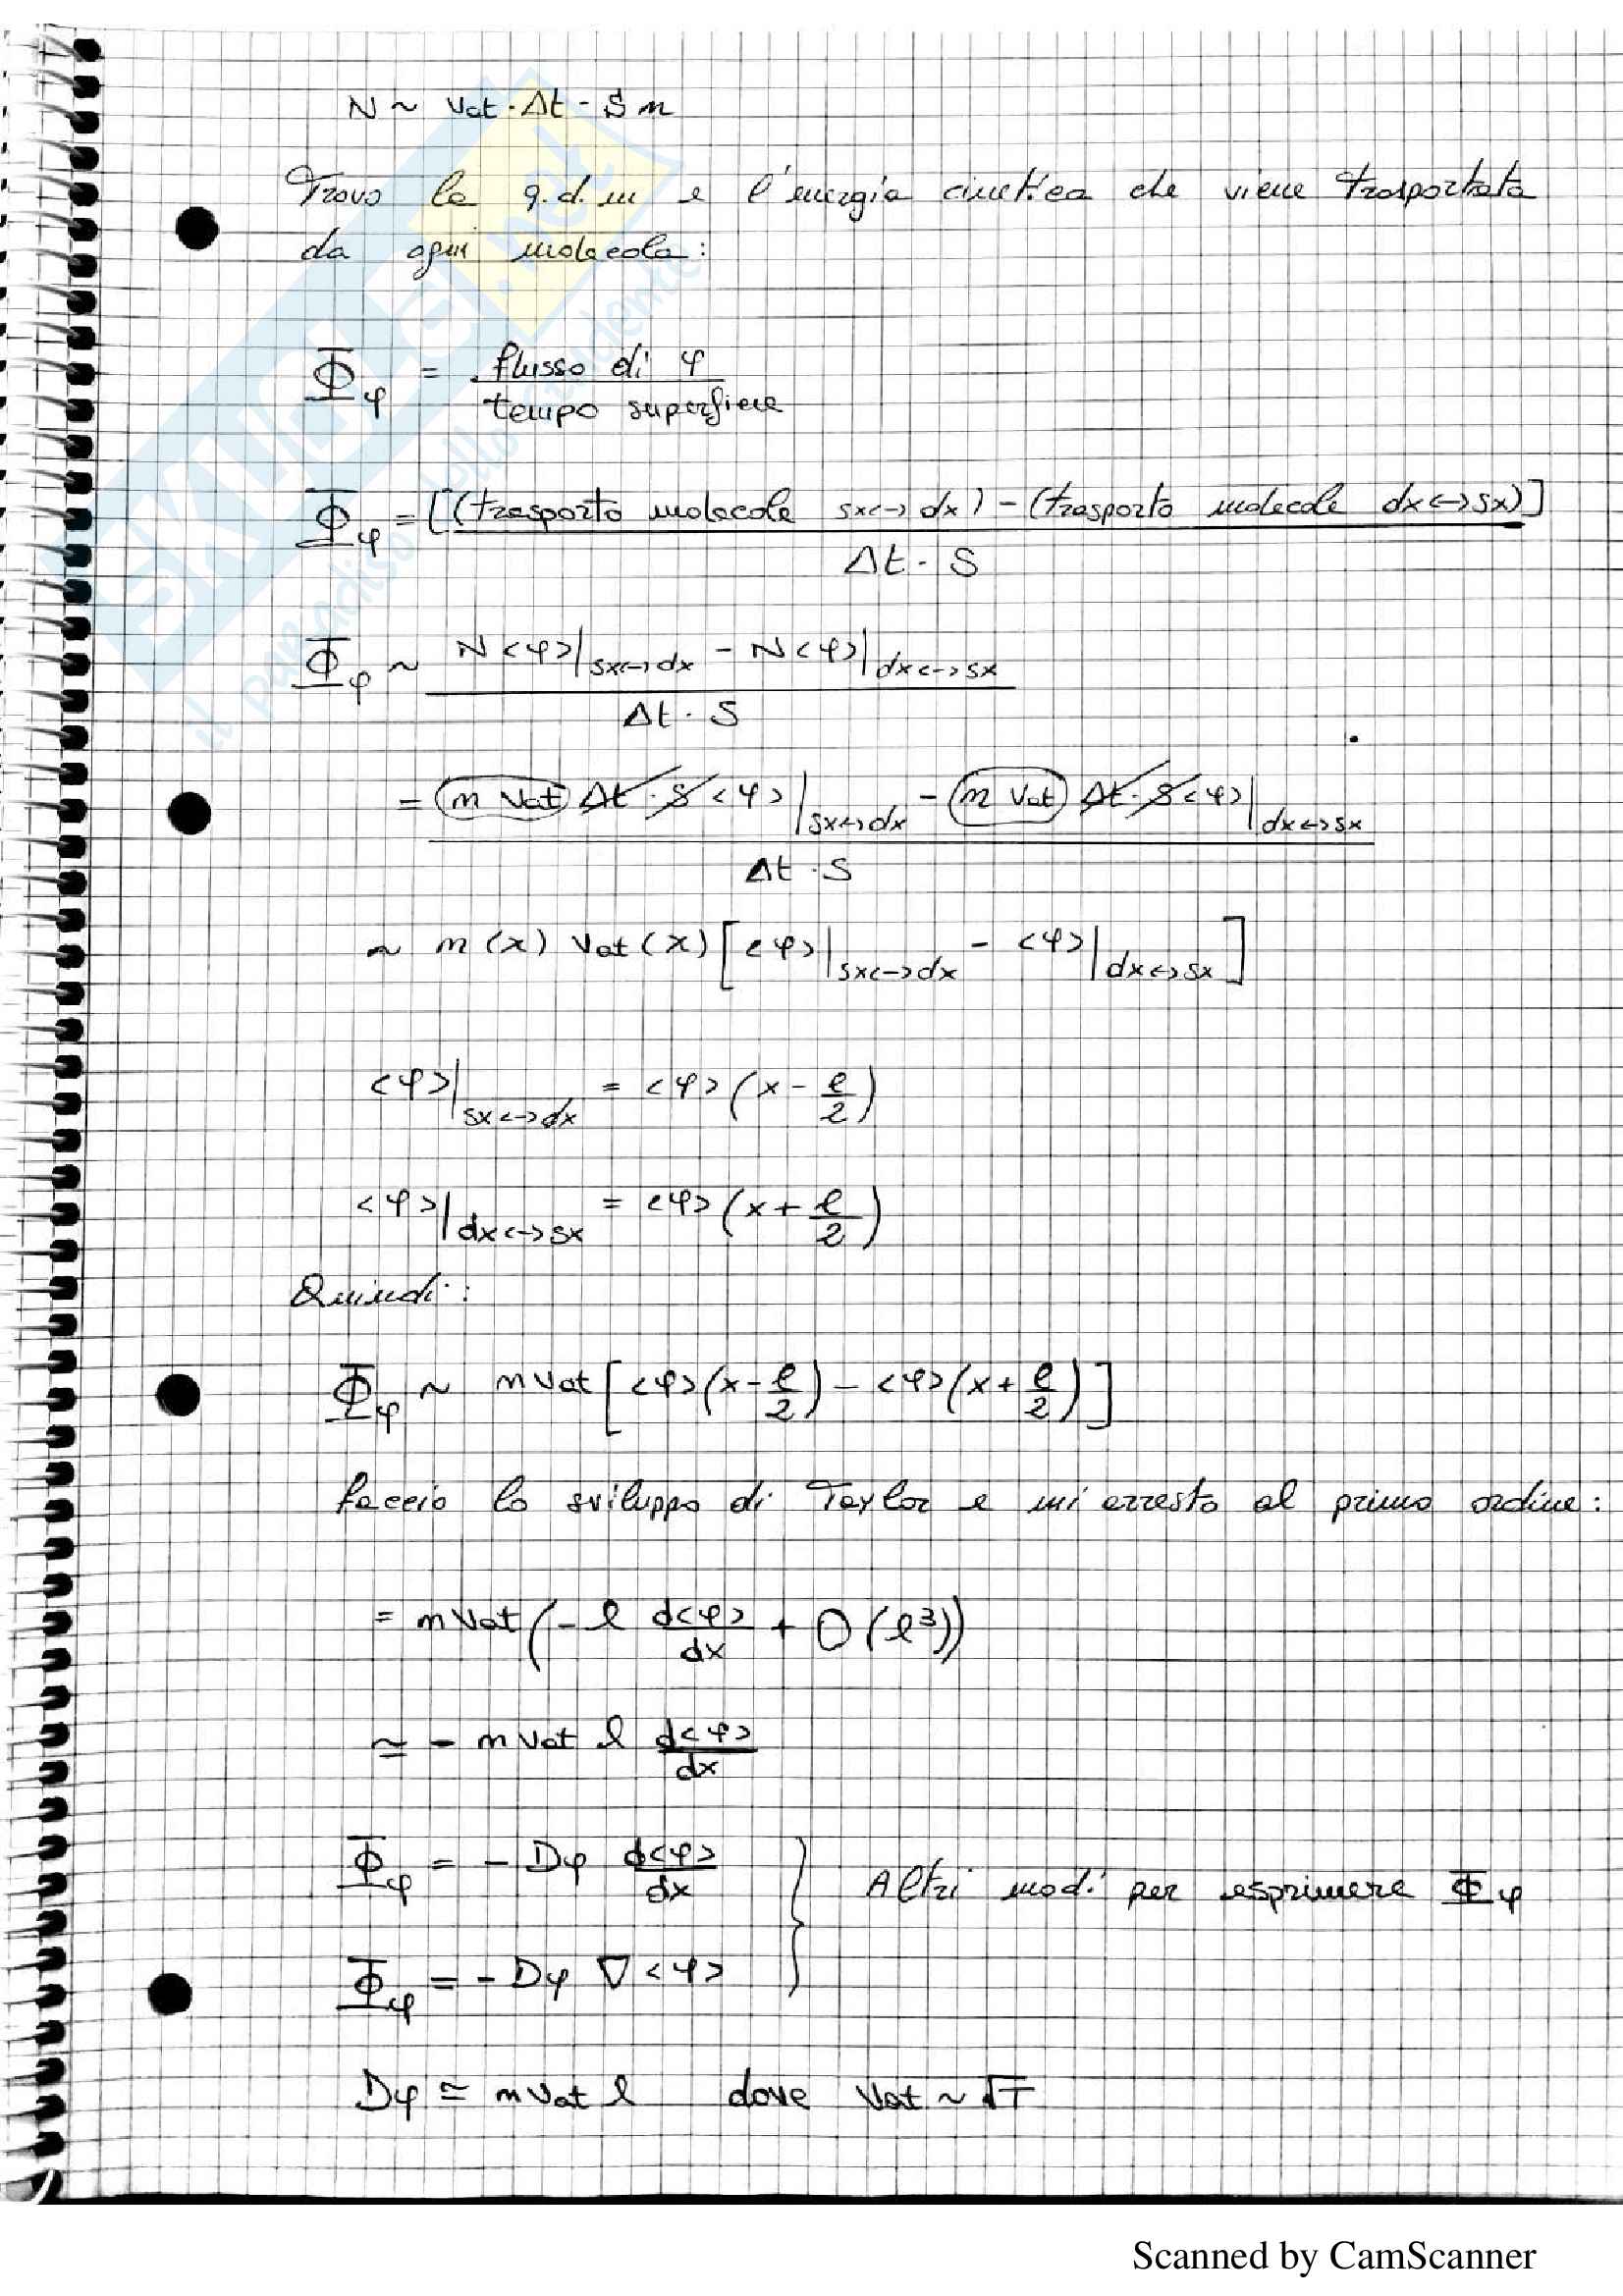 N ~ Vat · Δt · S n
Trovo la q.d.m e l'energia cinetica che viene trasportata
da ogni molecola:
Φφ = flusso di φ / tempo superficie
Φφ = [(trasporto molecole sx↔dx) - (trasporto molecole dx↔sx)] / Δt · S
Φφ ~ N<φ>|sx↔dx - N<φ>|dx↔sx / Δt · S
= n Vat Δt · S <φ>|sx↔dx - n Vat Δt · S <φ>|dx↔sx / Δt · S
~ n(x) Vat(x) [<φ>|sx↔dx - <φ>|dx↔sx]
<φ>|sx↔dx = <φ>(x - l/2)
<φ>|dx↔sx = <φ>(x + l/2)
Quindi:
Φφ ~ n Vat [<φ>(x - l/2) - <φ>(x + l/2)]
faccio lo sviluppo di Taylor e mi arresto al primo ordine:
= n Vat (-l d<φ>/dx + O(l³))
≃ - n Vat l d<φ>/dx
Φφ = - Dφ d<φ>/dx
Altri modi per esprimere Φφ
Φφ = - Dφ ∇<φ>
Dφ ≃ n Vat l dove Vat ~ √T
SKUOLA.net
il paradiso dello studente
Scanned by CamScanner